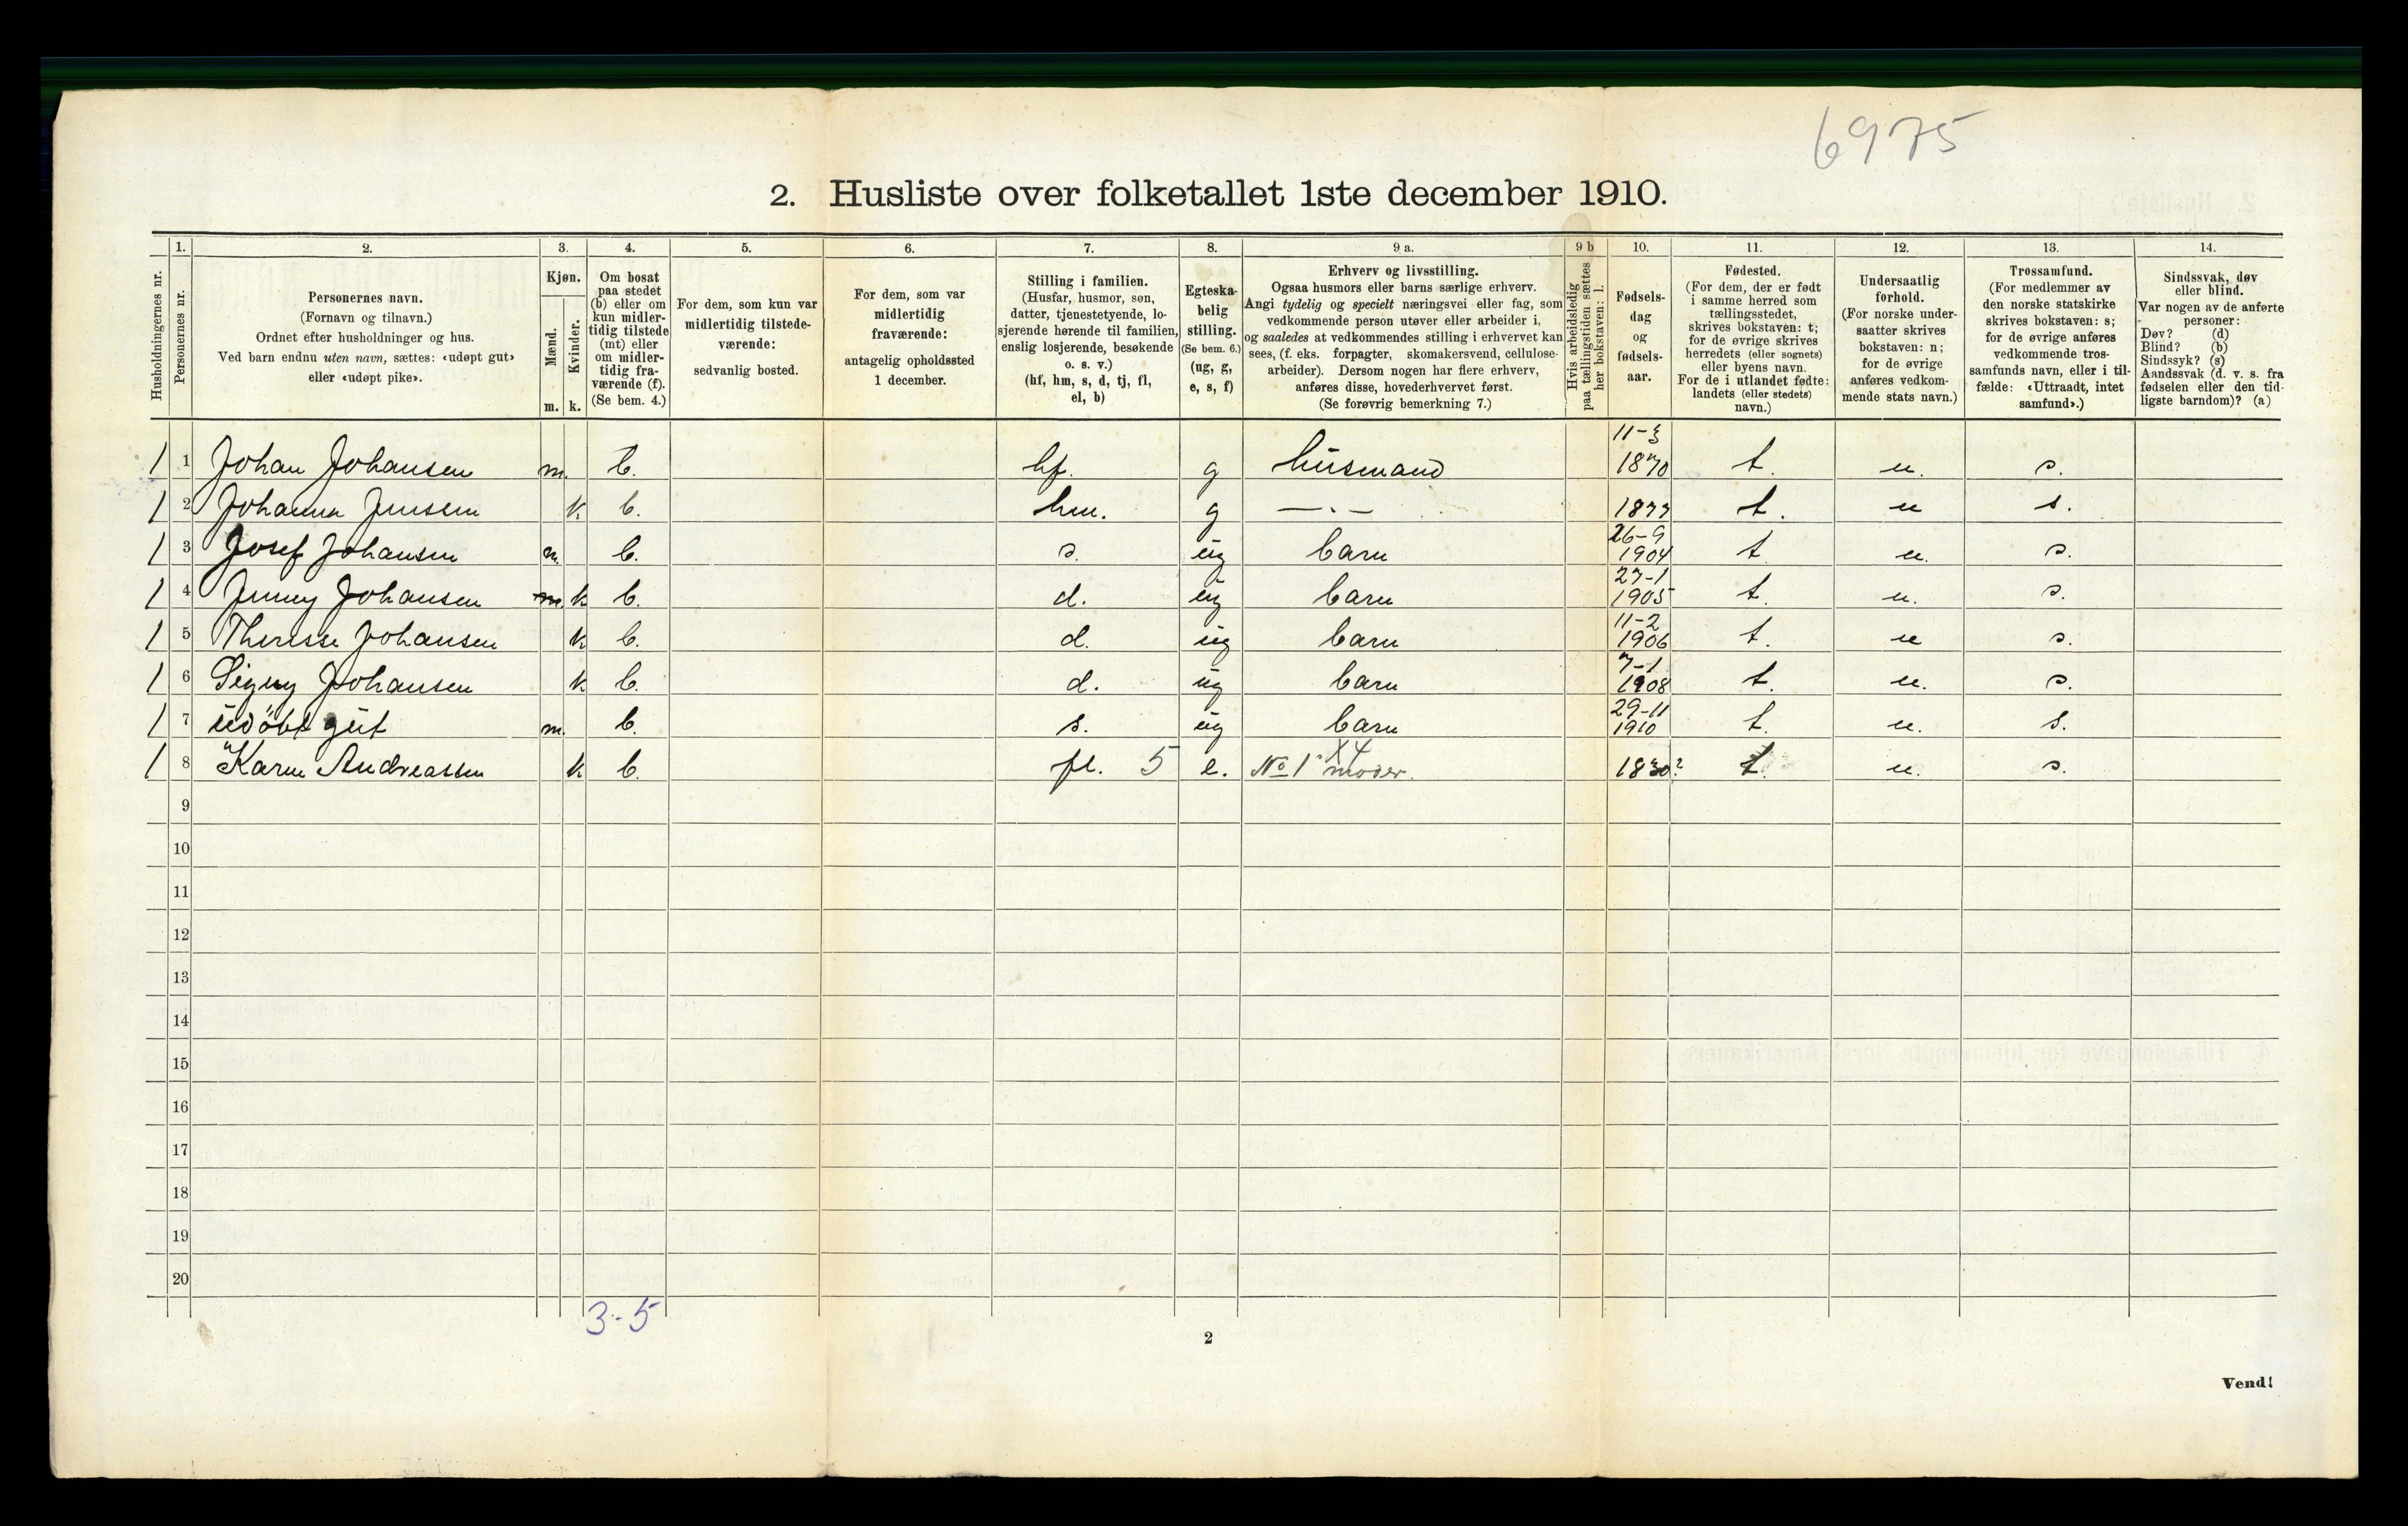 6975
2. Husliste over folketallet 1ste december 1910.
Husholdningernes nr.
1.
Personernes nr.
2.
Personernes navn.
(Fornavn og tilnavn.)
Ordnet efter husholdninger og hus.
Ved barn endnu uten navn, sættes: «udøpt gut»
eller «udøpt pike».
3.
Kjøn.
Mænd.
Kvinder.
m. k.
4.
Om bosat
paa stedet
(b) eller om
kun midler-
tidig tilstede
(mt) eller
om midler-
tidig fra-
værende (f).
(Se bem. 4.)
5.
For dem, som kun var
midlertidig tilstede-
værende:
sedvanlig bosted.
6.
For dem, som var
midlertidig
fraværende:
antagelig opholdssted
1 december.
7.
Stilling i familien.
(Husfar, husmor, søn,
datter, tjenestetyende, lo-
sjerende hørende til familien,
enslig losjerende, besøkende
o. s. v.)
(hf, hm, s, d, tj, fl,
el, b)
8.
Egteska-
belig
stilling.
(Se bem. 6.)
(ug, g,
e, s, f)
9 a.
Erhverv og livsstilling.
Ogsaa husmors eller barns særlige erhverv.
Angi tydelig og specielt næringsvei eller fag, som
vedkommende person utøver eller arbeider i,
og saaledes at vedkommendes stilling i erhvervet kan
sees, (f. eks. forpagter, skomakersvend, cellulose-
arbeider). Dersom nogen har flere erhverv,
anføres disse, hovederhvervet først.
(Se forøvrig bemerkning 7.)
9 b
Hvis arbeidsledig
paa tællingstiden sættes
her bokstaven: l.
10.
Fødsels-
dag
og
fødsels-
aar.
11.
Fødested.
(For dem, der er født
i samme herred som
tællingsstedet,
skrives bokstaven: t;
for de øvrige skrives
herredets (eller sognets)
eller byens navn.
For de i utlandet fødte:
landets (eller stedets)
navn.)
12.
Undersaatlig
forhold.
(For norske under-
saatter skrives
bokstaven: n;
for de øvrige
anføres vedkom-
mende stats navn.)
13.
Trossamfund.
(For medlemmer av
den norske statskirke
skrives bokstaven: s;
for de øvrige anføres
vedkommende tros-
samfunds navn, eller i til-
fælde: «Uttraadt, intet
samfund».)
14.
Sindssvak, døv
eller blind.
Var nogen av de anførte
personer:
Døv? (d)
Blind? (b)
Sindssyk? (s)
Aandssvak (d. v. s. fra
fødselen eller den tid-
ligste barndom)? (a)
1 1 Johan Johansen m. b. hf. g husmand 11-3 1870 t. n. s.
1 2 Johanna Jensen k b. hm. g —.— 1877 t. n s.
1 3 Josef Johansen m. b. s. ug barn 26-9 1904 t n. s.
1 4 Jenny Johansen m. k b. d. ug barn 27-1 1905 t. n. s.
1 5 Theresse Johansen k b. d. ug barn 11-2 1906 t. n s.
1 6 Signy Johansen k b. d. ug barn 7-1 1908 t. n. s.
1 7 udöbt gut m. b. s. ug barn 29-11 1910 t. n. s.
1 8 Karen Andreassen k b. fl. 5 e. No 1 X4 moder. 1830? t. n. s.
9
10
11
12
13
14
15
16
17
18
19
20
3-5
2
Vend!